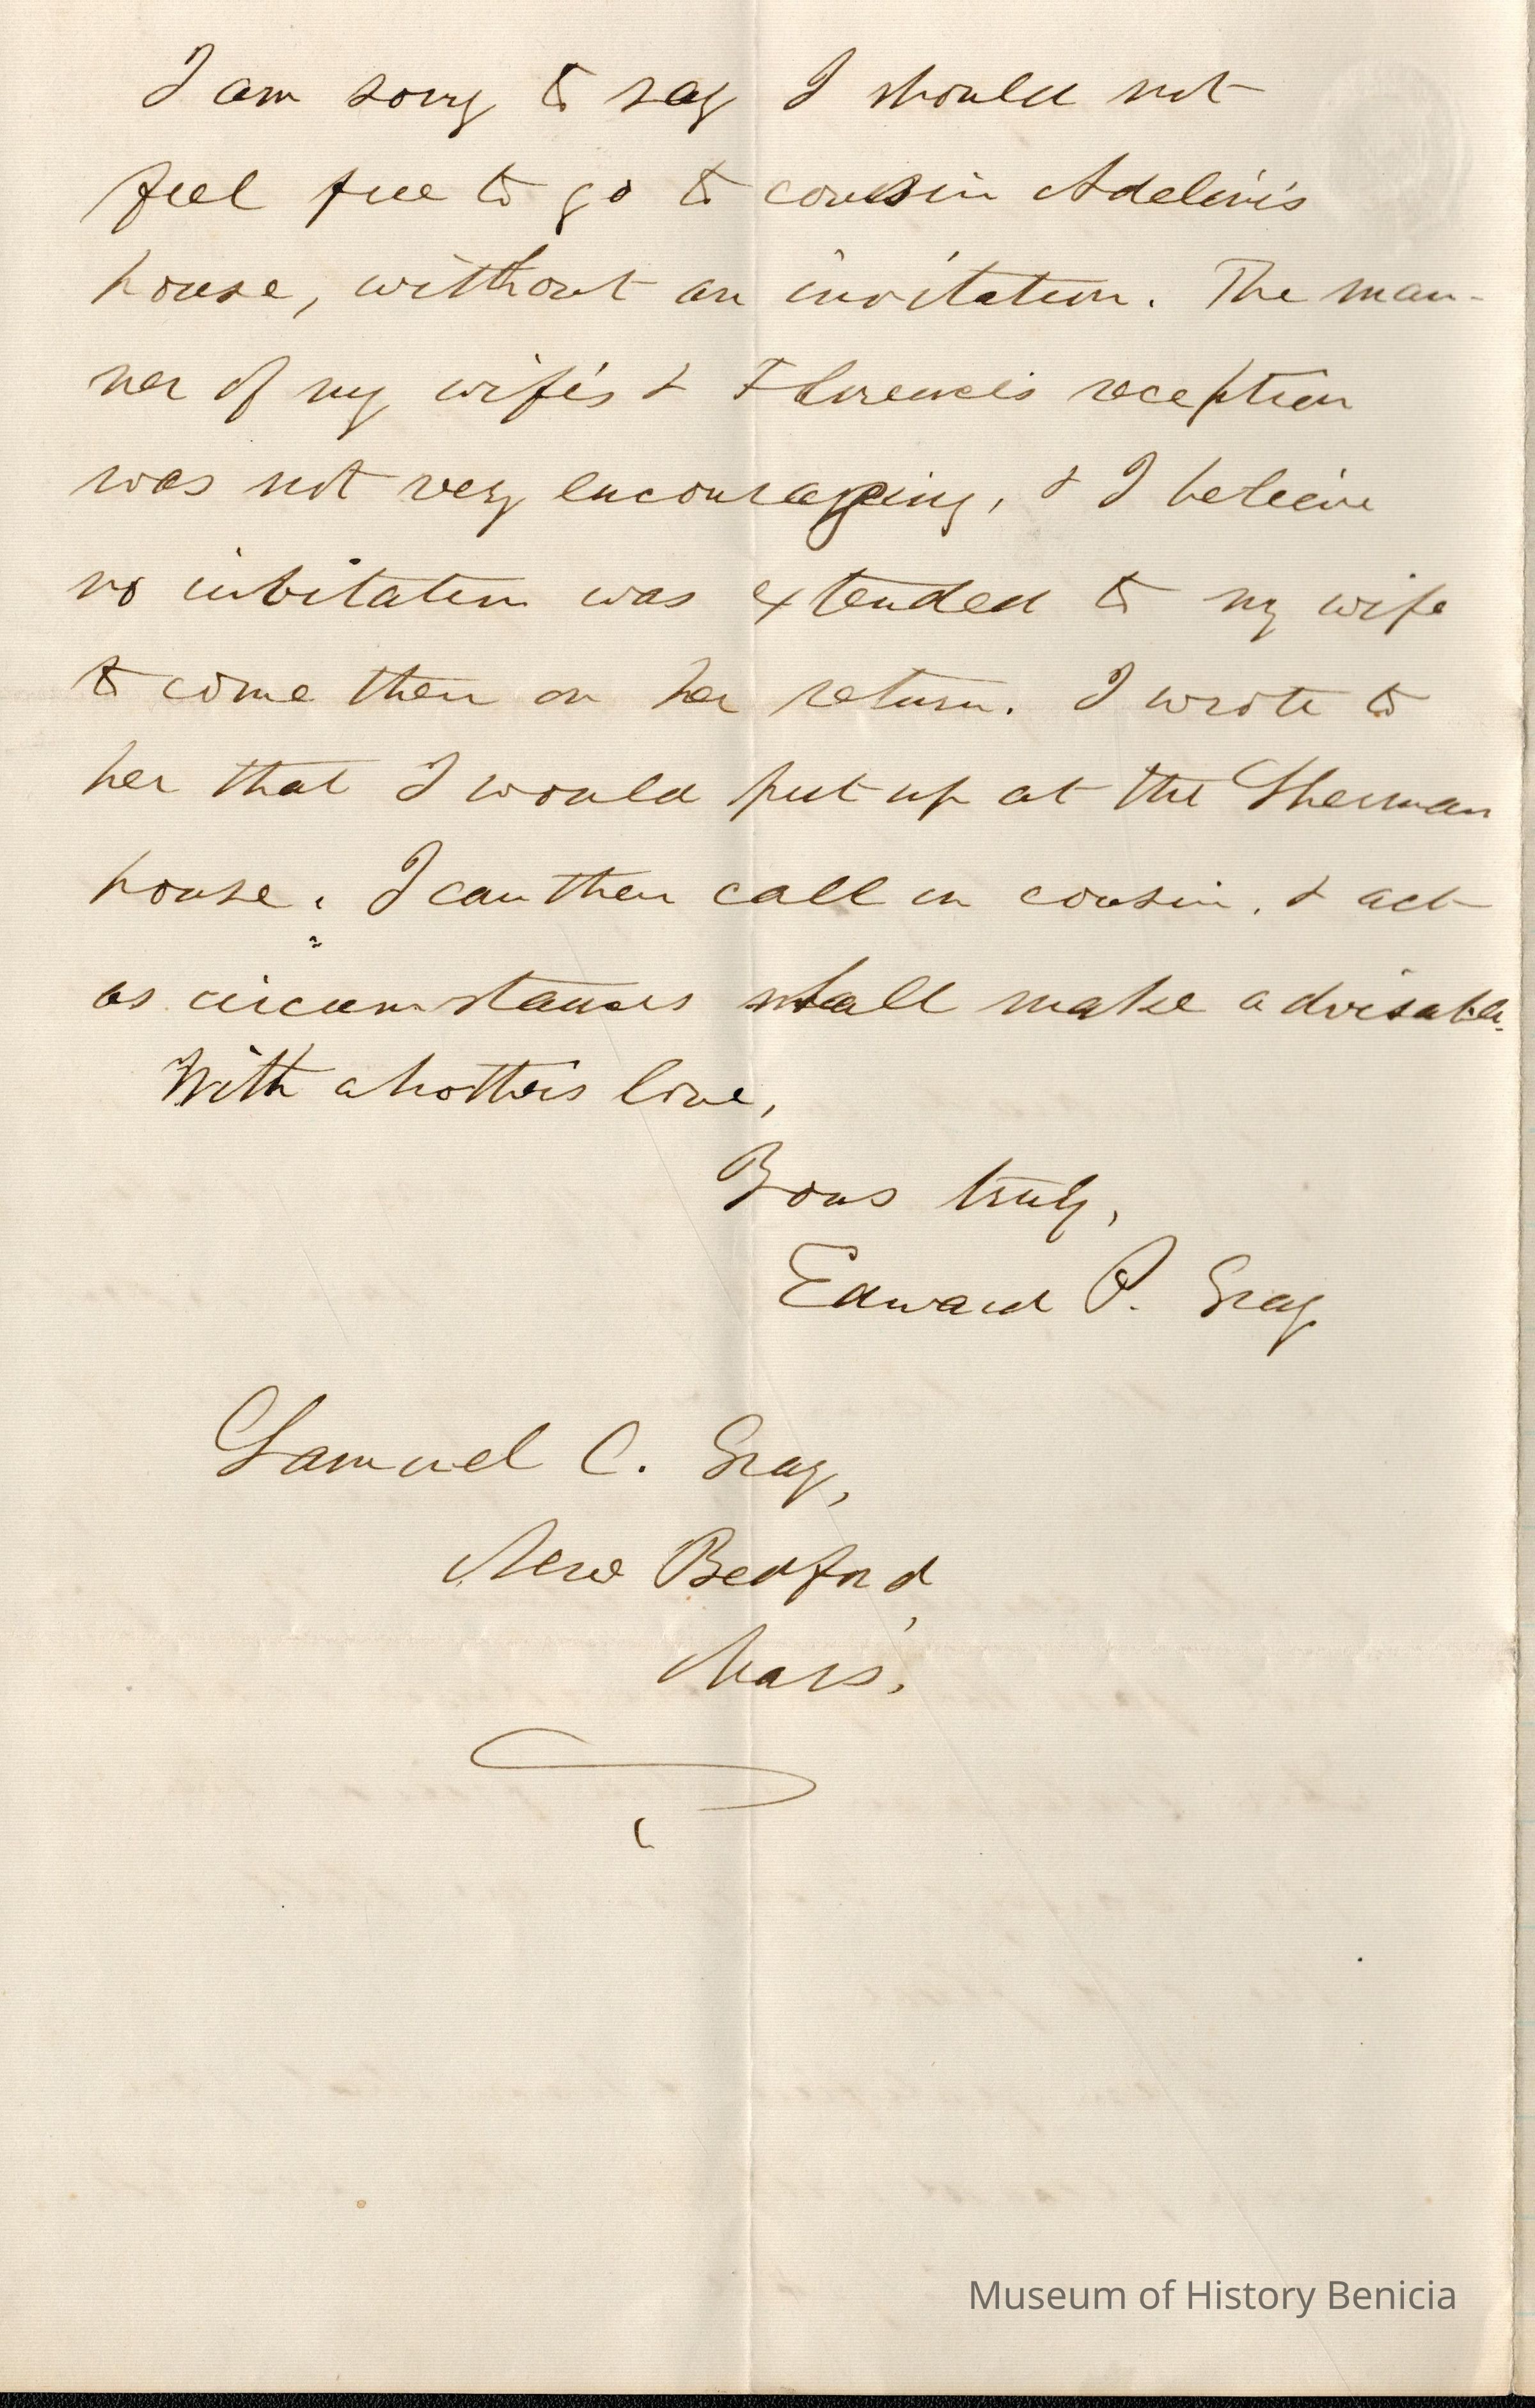 I am sorry to say I should not
feel free to go to cousin Adeline's
house, without an invitation. The man-
ner of my wife's & Florence's reception
was not very encouraging, & I believe
no invitation was extended to my wife
to come then on her return. I wrote to
her that I would put up at the Sherman
house. I can then call on cousin, & act
as circumstances shall make advisable.
With a brother's love,
Yours truly,
Edward P. Gray
Samuel C. Gray,
New Bedford,
Mass.
Museum of History Benicia